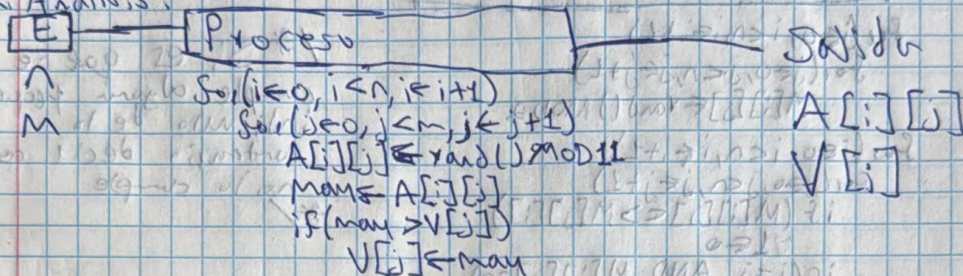 Analisis.
E Proceso Salida
n
m
for(i←0, i<n, i←i+1)
for(j←0, j<m, j←j+1)
A[i][j]←rand()MOD11
may←A[i][j]
if(may>V[j])
V[j]←may
A[i][j]
V[j]